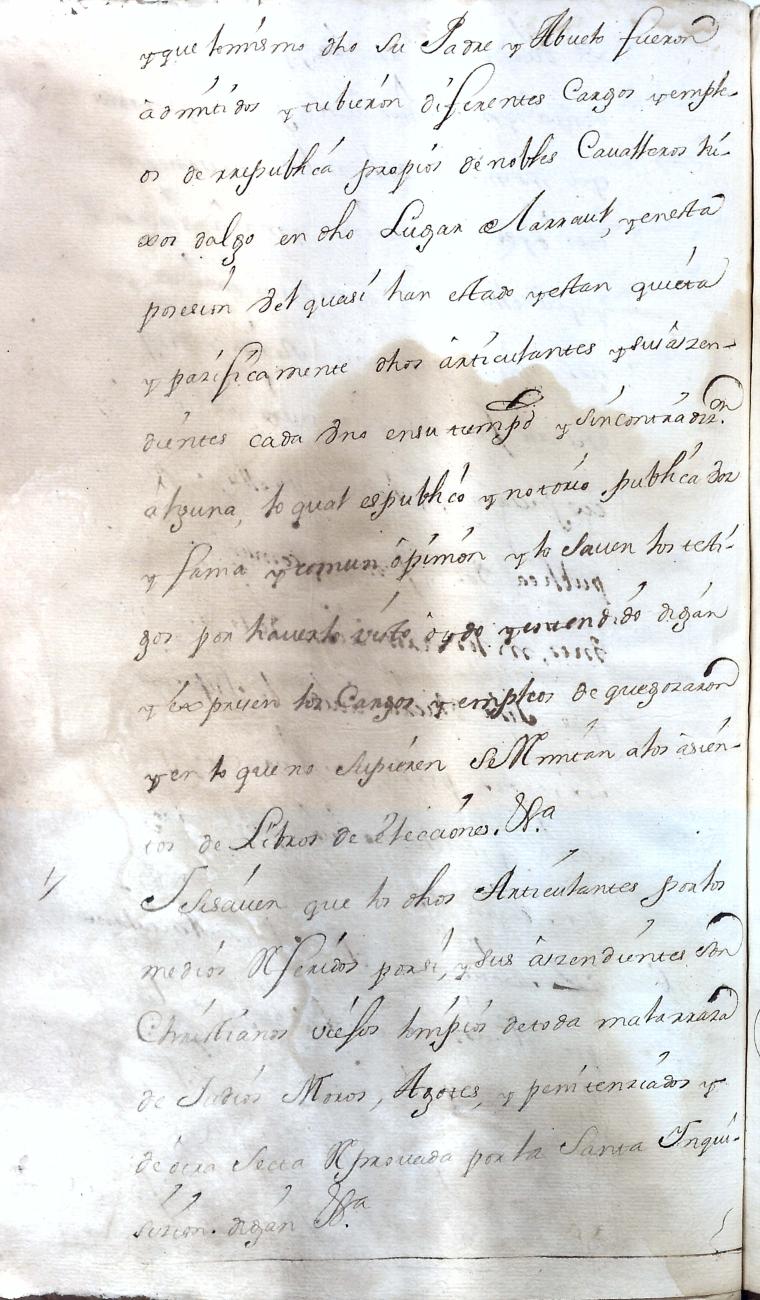 y que lo mismo dho su Padre y Abuelo fueron
admitidos y tubieron diferentes Cargos y emple-
os de rrepublica propios de nobles Cavalleros hi-
xos dalgo en dho Lugar de Marraut, y en esta
posesion vel quasi han estado y estan quieta
y pazificamente dhos articulantes y sus aszen-
dientes cada Uno en su tiempo y sin contradizn.
alguna, lo qual es publico y notorio publica voz
y fama y comun opinion y lo saven los testi-
gos por haverlo visto oydo y entendido digan
y expresen los Cargos y empleos de que gozaron
y en lo que no supieren se Rmitan a los asien-
tos de Libros de elecciones. &a
Y si saven que los dhos Articulantes por los
medios Rferidos por si, y sus aszendientes son
Christianos viejos limpios de toda mala rraza
de Judios Moros, Agotes, y penitenziados y
de otra Secta Rprovada por la Santa Inqui-
sizion. digan &a